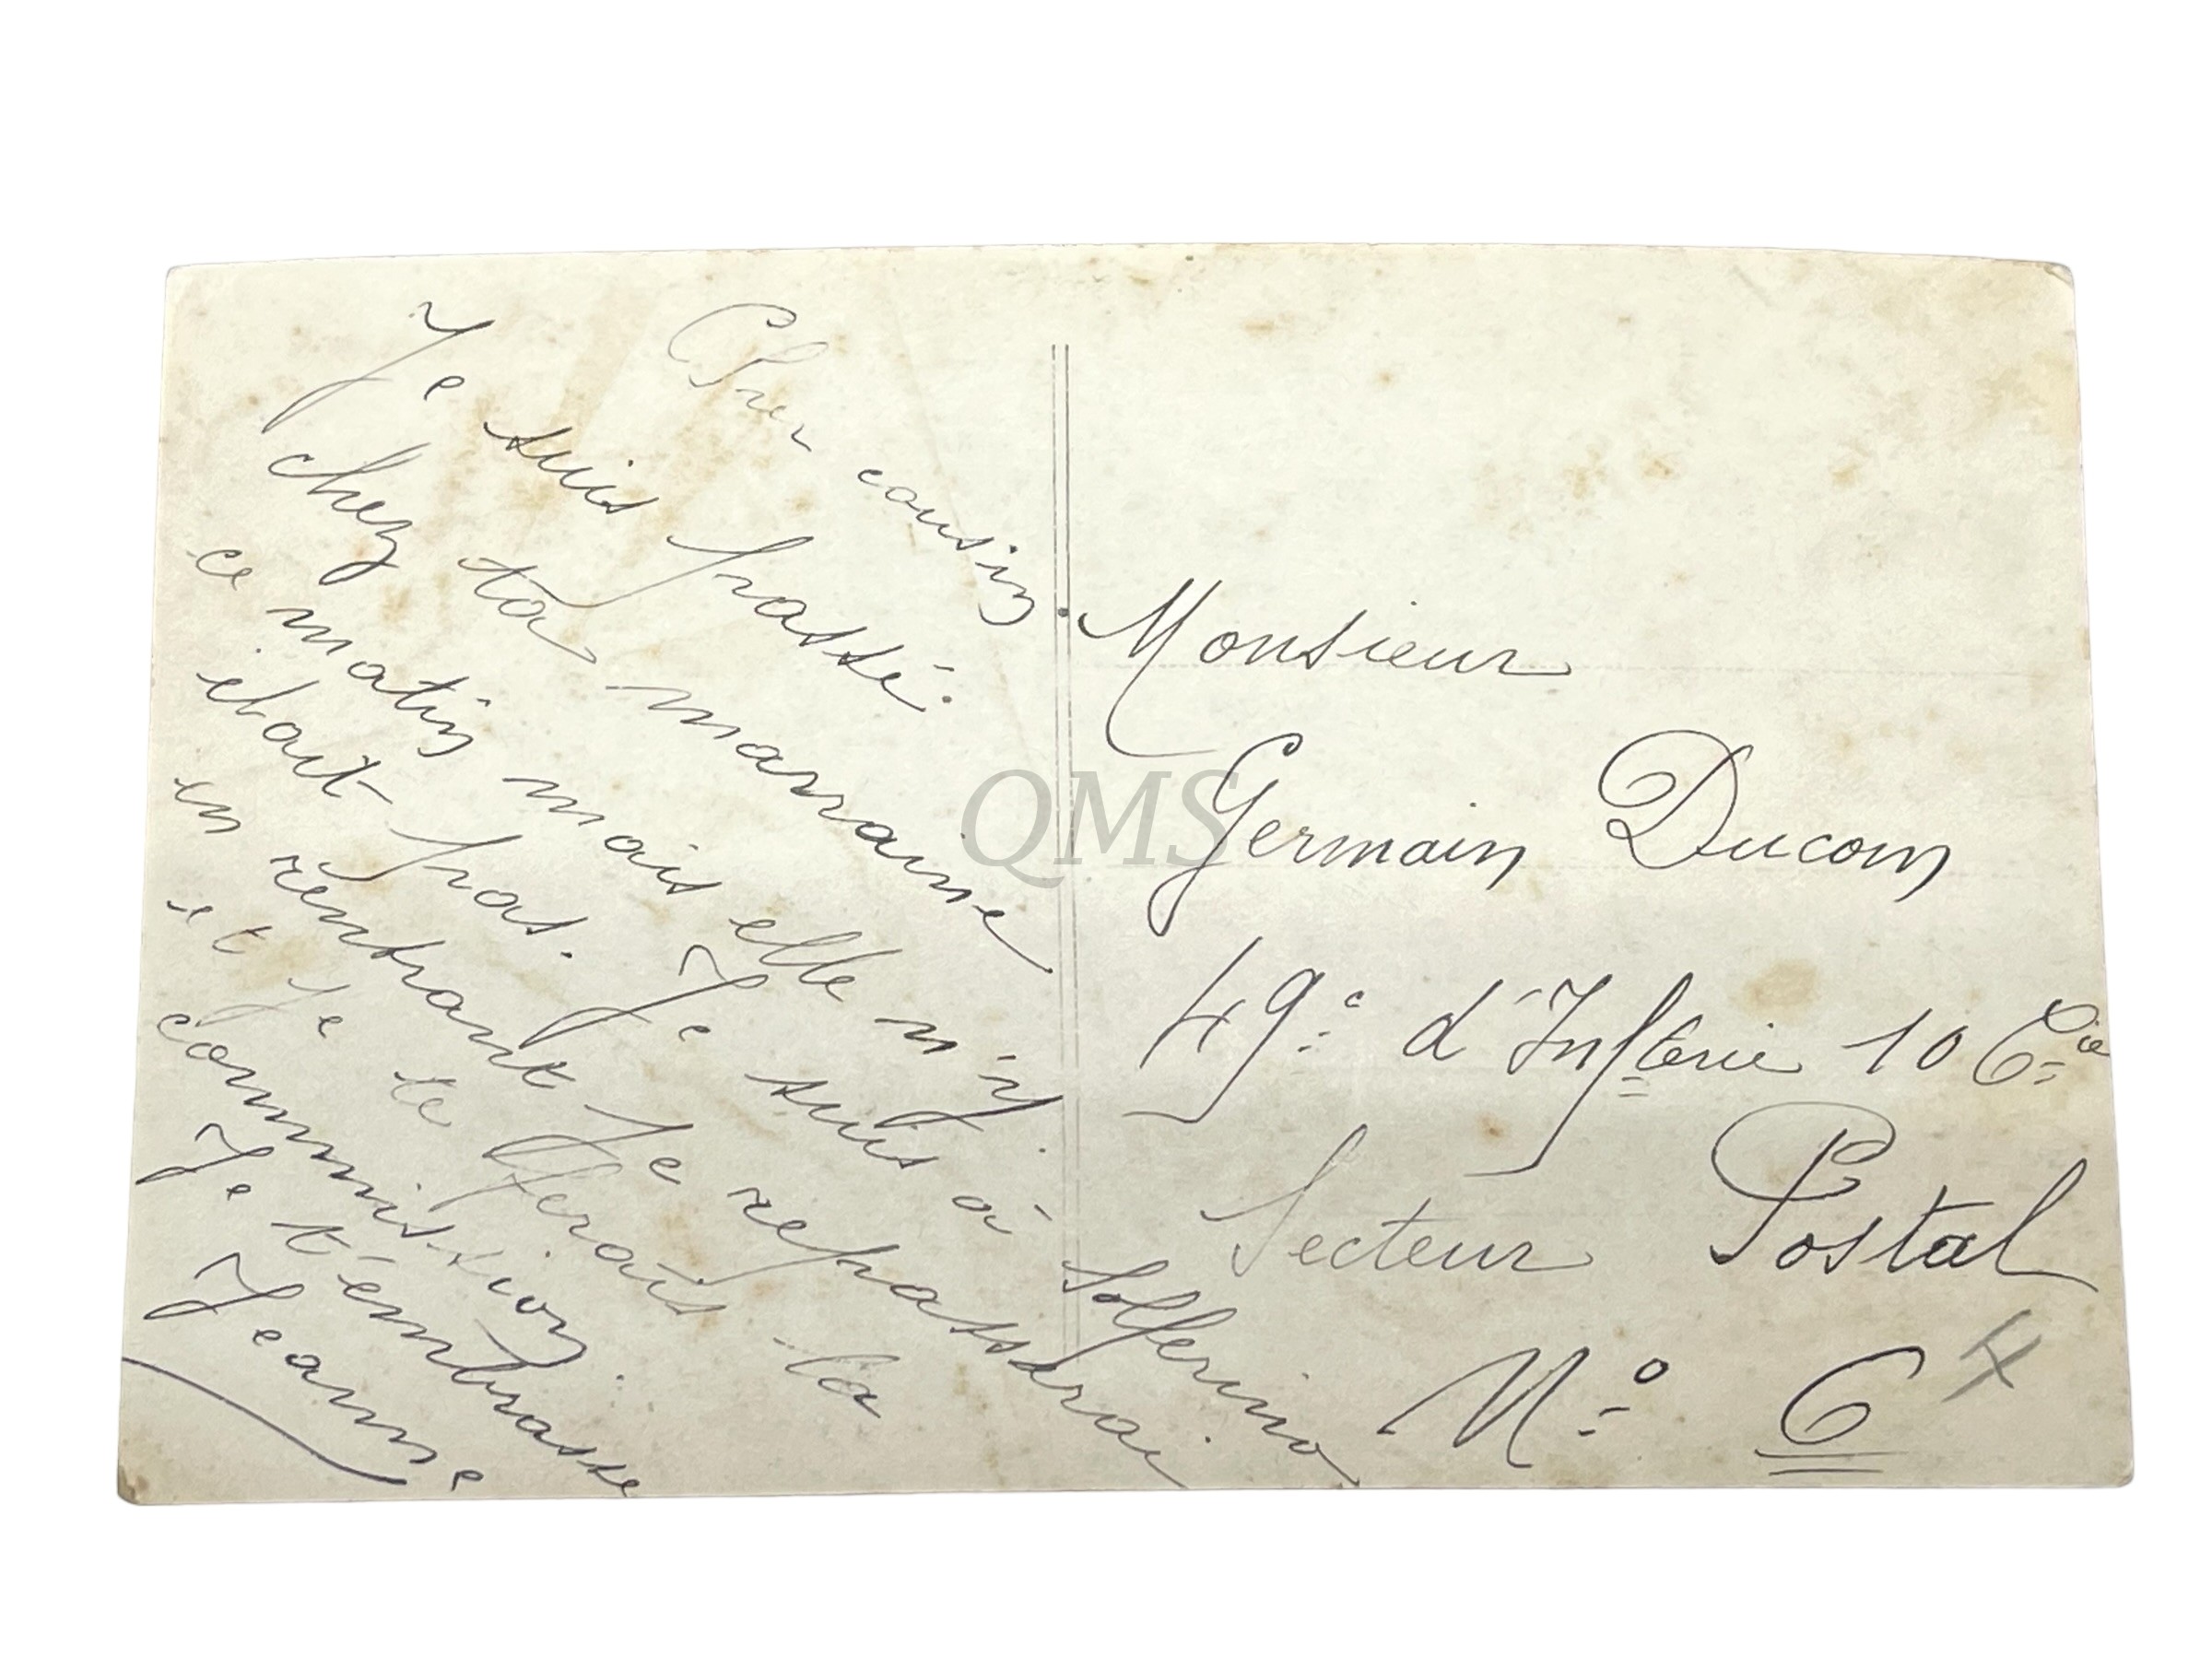 Cher cousin
Je suis passé.
chez ta marraine
ce matin mais elle n'y.
était pas. Je suis à Solferino
en rentrant Je repasserai
et Je te ferais la
commission.
Je t'embrasse
Jeanne
Monsieur
Germain Ducom
49e d'Infterie 10 Cie
Secteur Postal
No 6
QMS